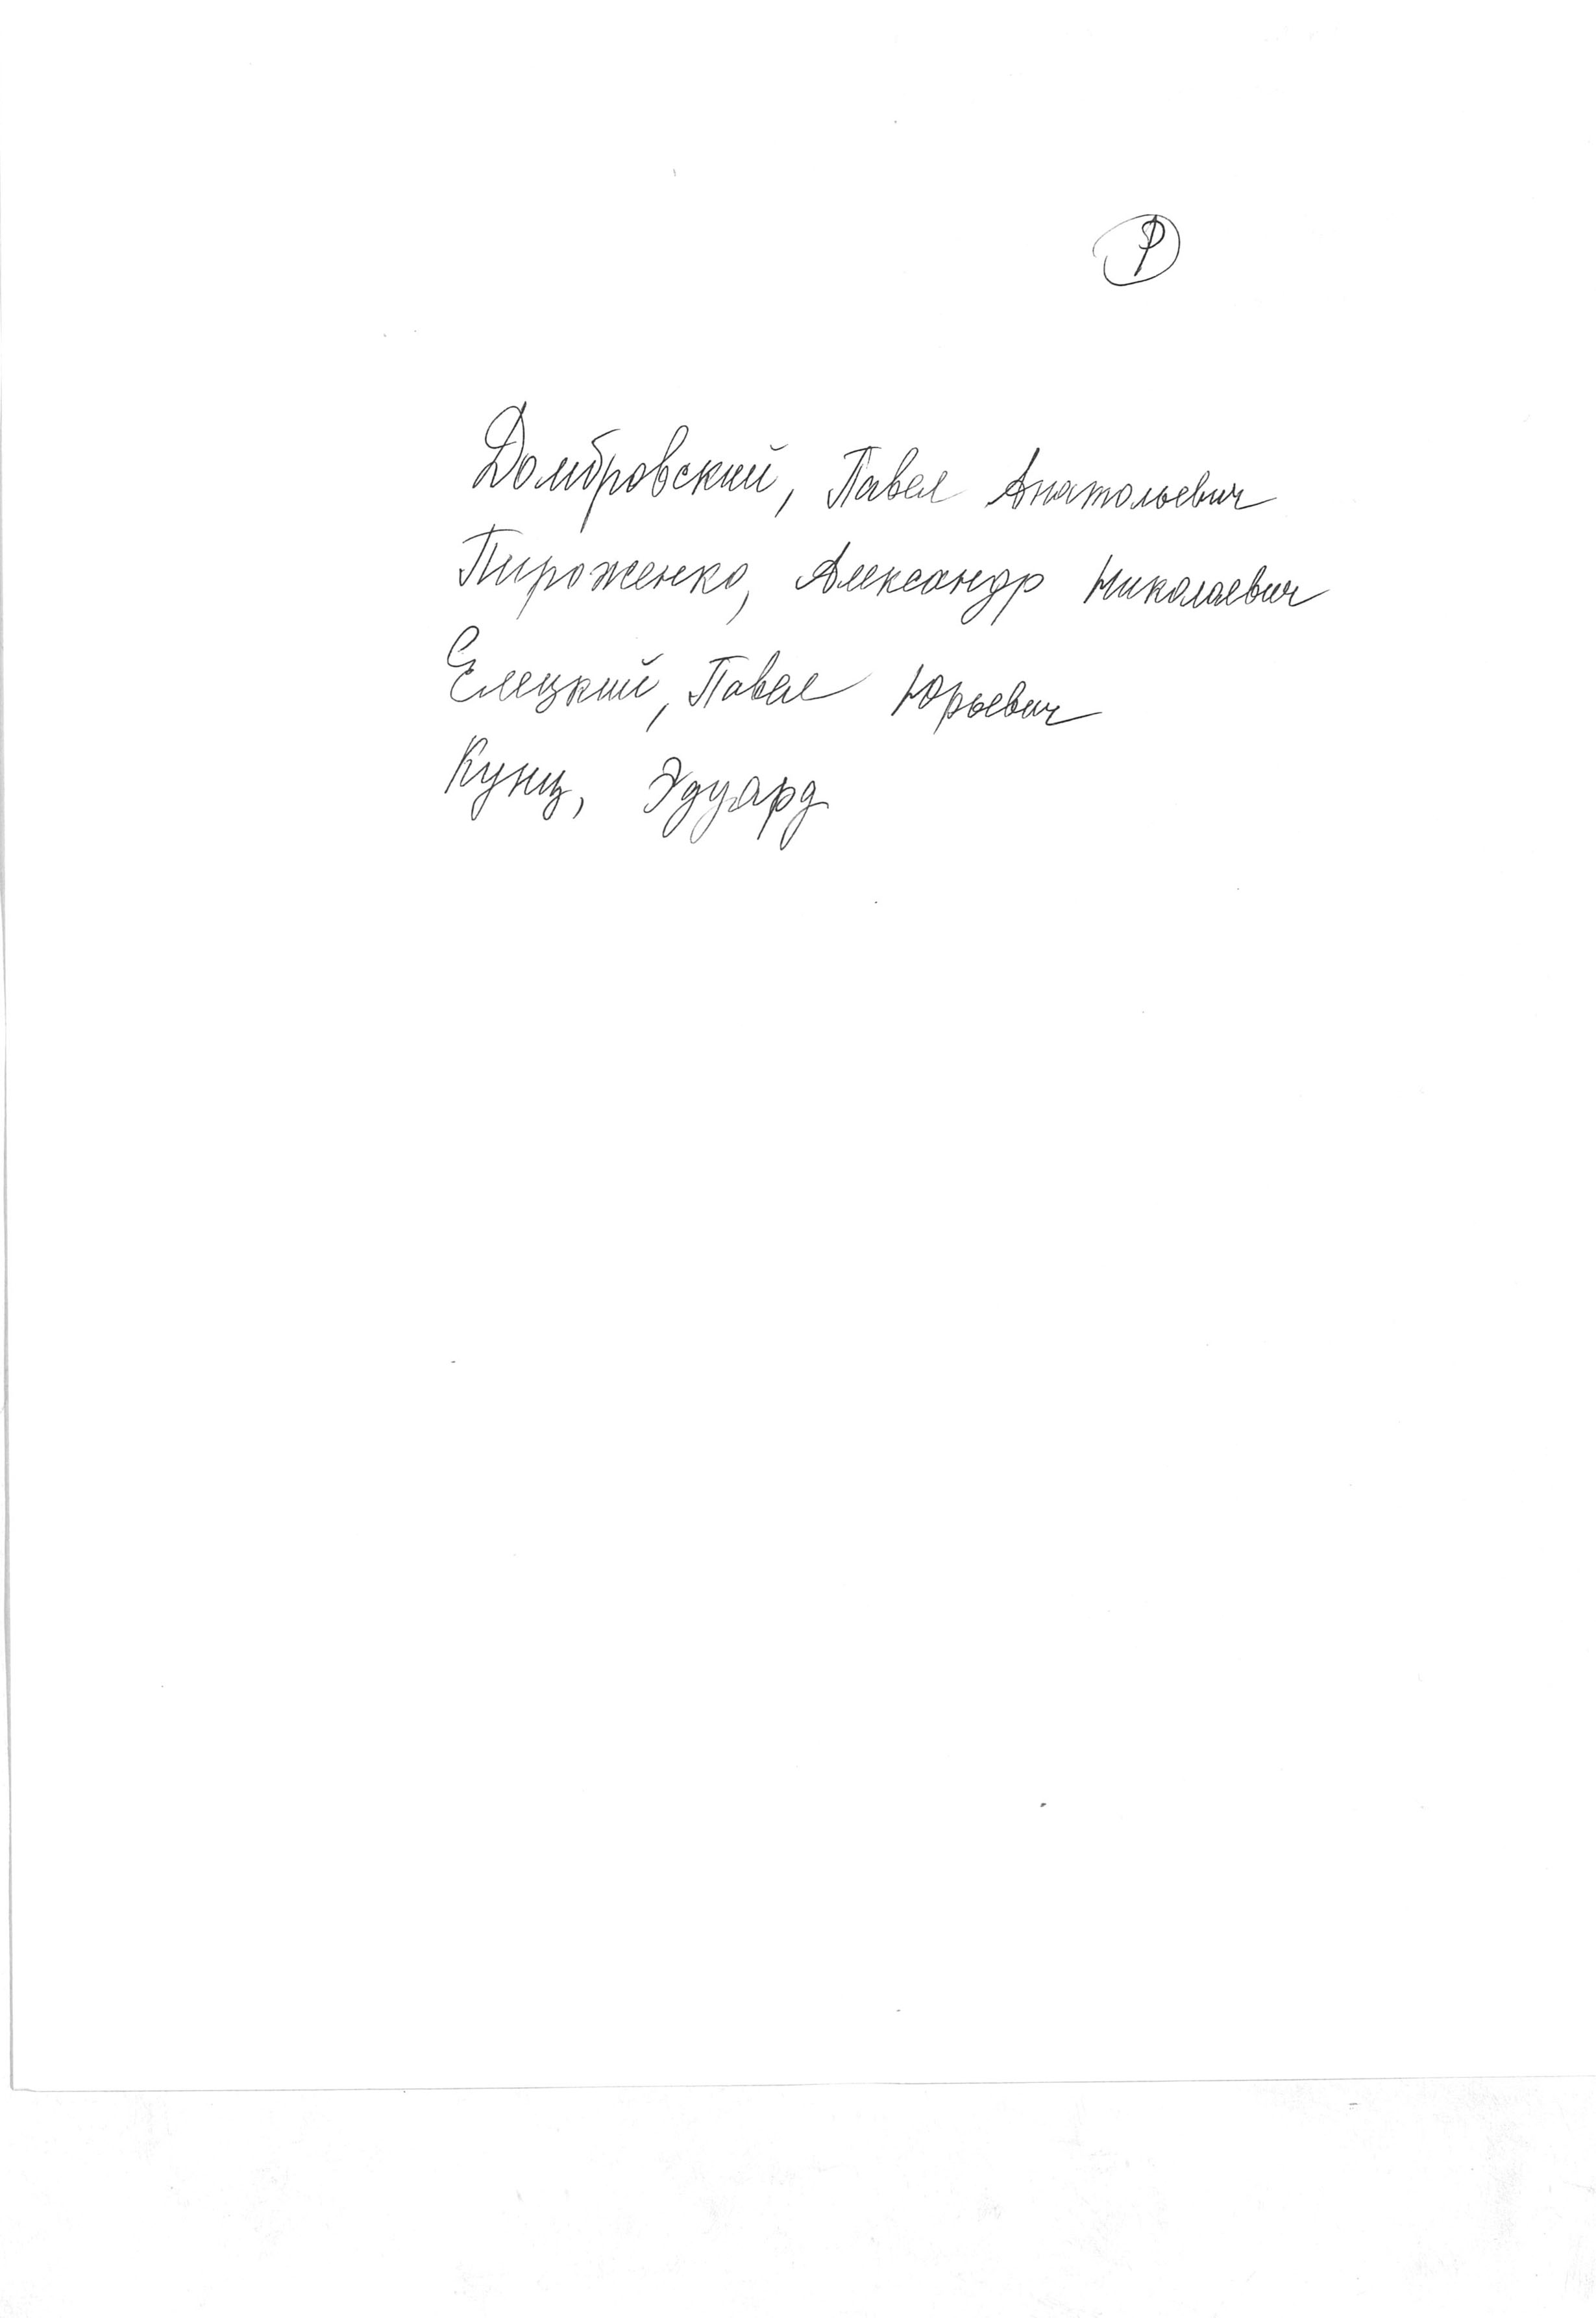 Домбровский, Павел Анатольевич
Пироженко, Александр Николаевич
Елецкий, Павел Юрьевич
Кунц, Эдуард